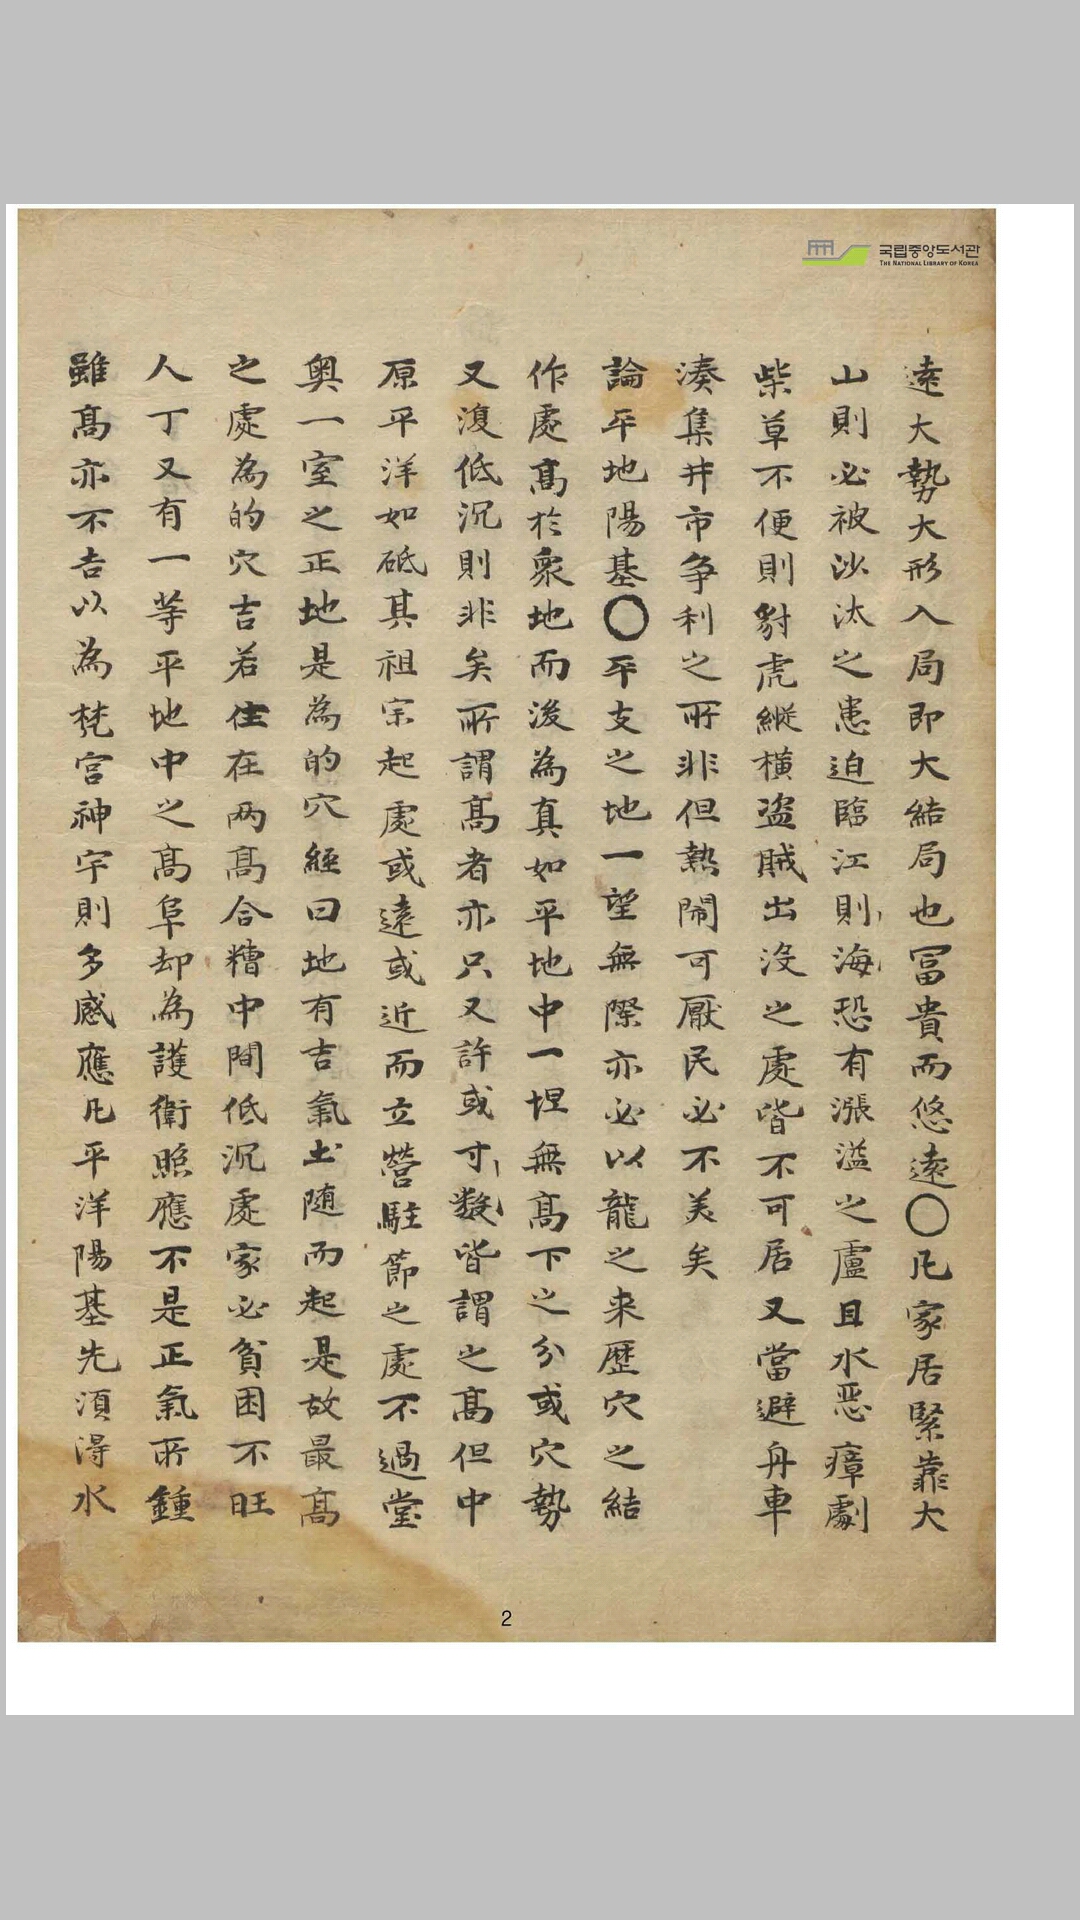 국립중앙도서관
THE NATIONAL LIBRARY OF KOREA
遠大勢大形入局即大結局也冨貴而悠遠〇凡家居緊靠大
山則必被沙汰之患迫臨江則海恐有漲溢之盧且水惡瘴劇
柴草不便則豺虎縱橫盜賊出沒之處皆不可居又當避舟車
湊集井市爭利之所非但熱鬧可厭民必不美矣
論平地陽基〇平支之地一望無際亦必以龍之来歷穴之結
作處髙於衆地而後為真如平地中一埕無髙下之分或穴勢
又復低沉則非矣所謂髙者亦只又許或寸數皆謂之髙但中
原平洋如砥其祖宗起處或遠或近而立營駐節之處不過堂
奧一室之正地是為的穴經曰地有吉氣土随而起是故最髙
之處為的穴吉若住在两髙合糟中間低沉處家必貧困不旺
人丁又有一等平地中之髙阜却為護衛照應不是正氣所鍾
雖髙亦不吉以為梵宮神宇則多感應凡平洋陽基先湏得水
2